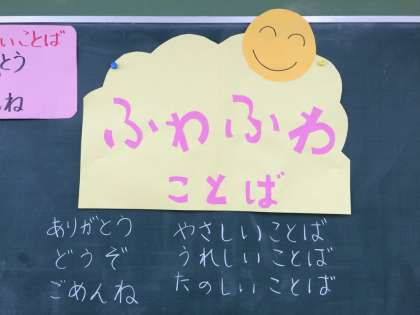 いことば
とう
ね
ふわふわ
ことば
ありがとう
どうぞ
ごめんね
やさしいことば
うれしいことば
たのしいことば